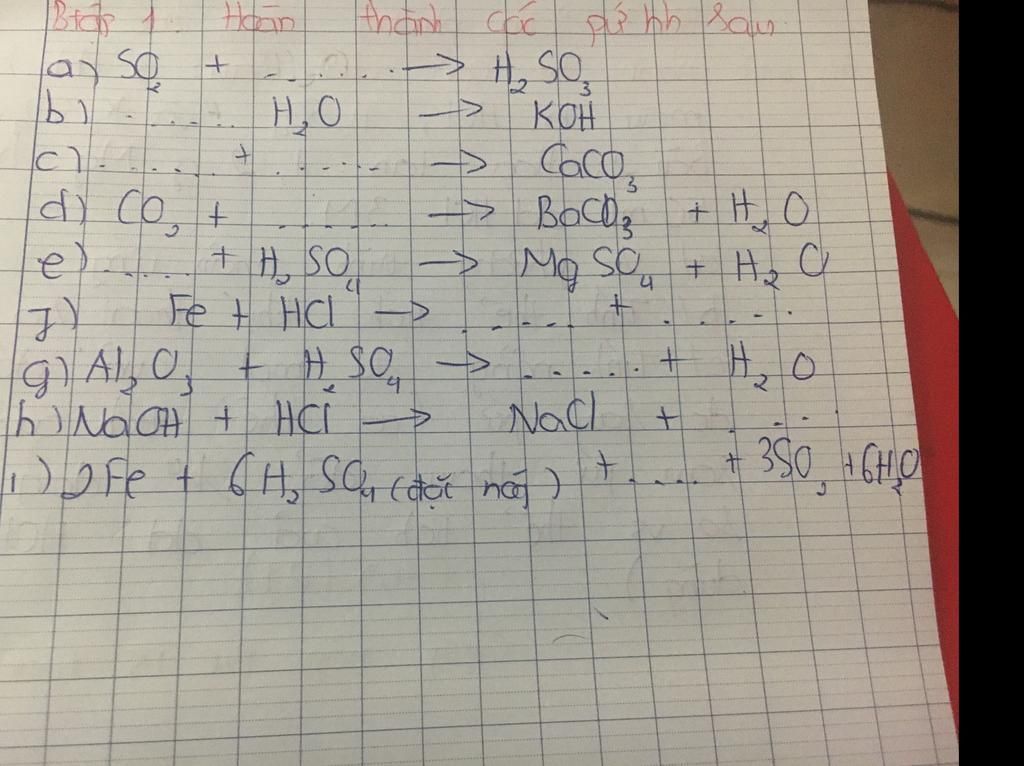 Btập 1. Hoàn thành các pứ hh sau
a) SO₂ + ......... → H₂SO₃
b) ......... H₂O → KOH
c) ......... + ......... → CaCO₃
d) CO₂ + ......... → BaCO₃ + H₂O
e) ......... + H₂SO₄ → MgSO₄ + H₂O
f) Fe + HCl → ......... + .........
g) Al₂O₃ + H₂SO₄ → ......... + H₂O
h) NaOH + HCl → NaCl + .........
i) 2Fe + 6H₂SO₄ (đặc nóg) + ...... + 3SO₂ + 6H₂O